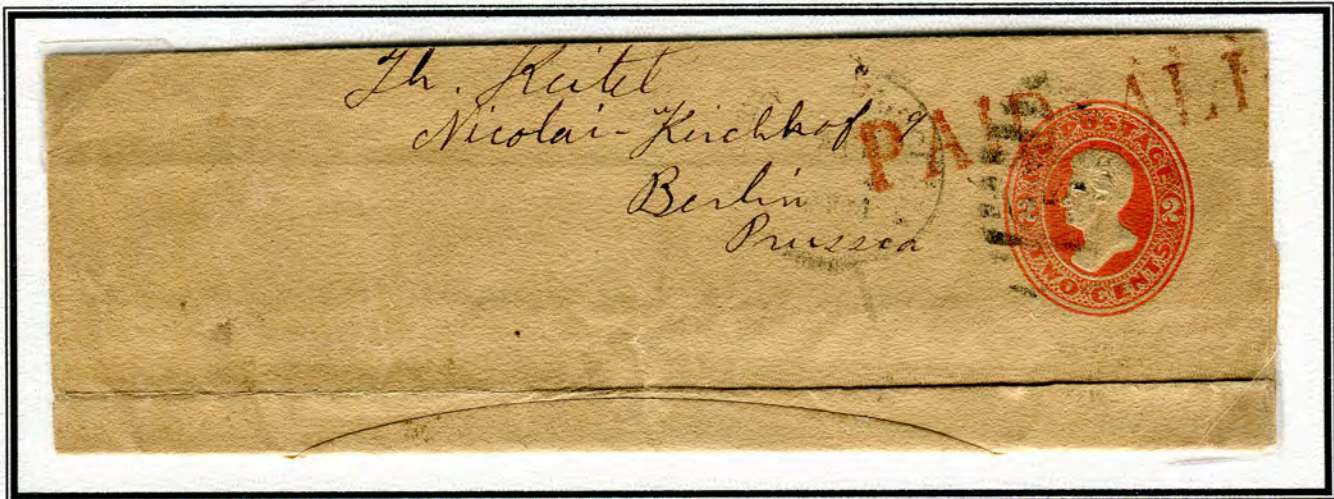 Th. Keitel
Nicolai-Kirchhof 9
Berlin
Prussia
PAID ALL
U.S. POSTAGE
2 2
TWO CENTS